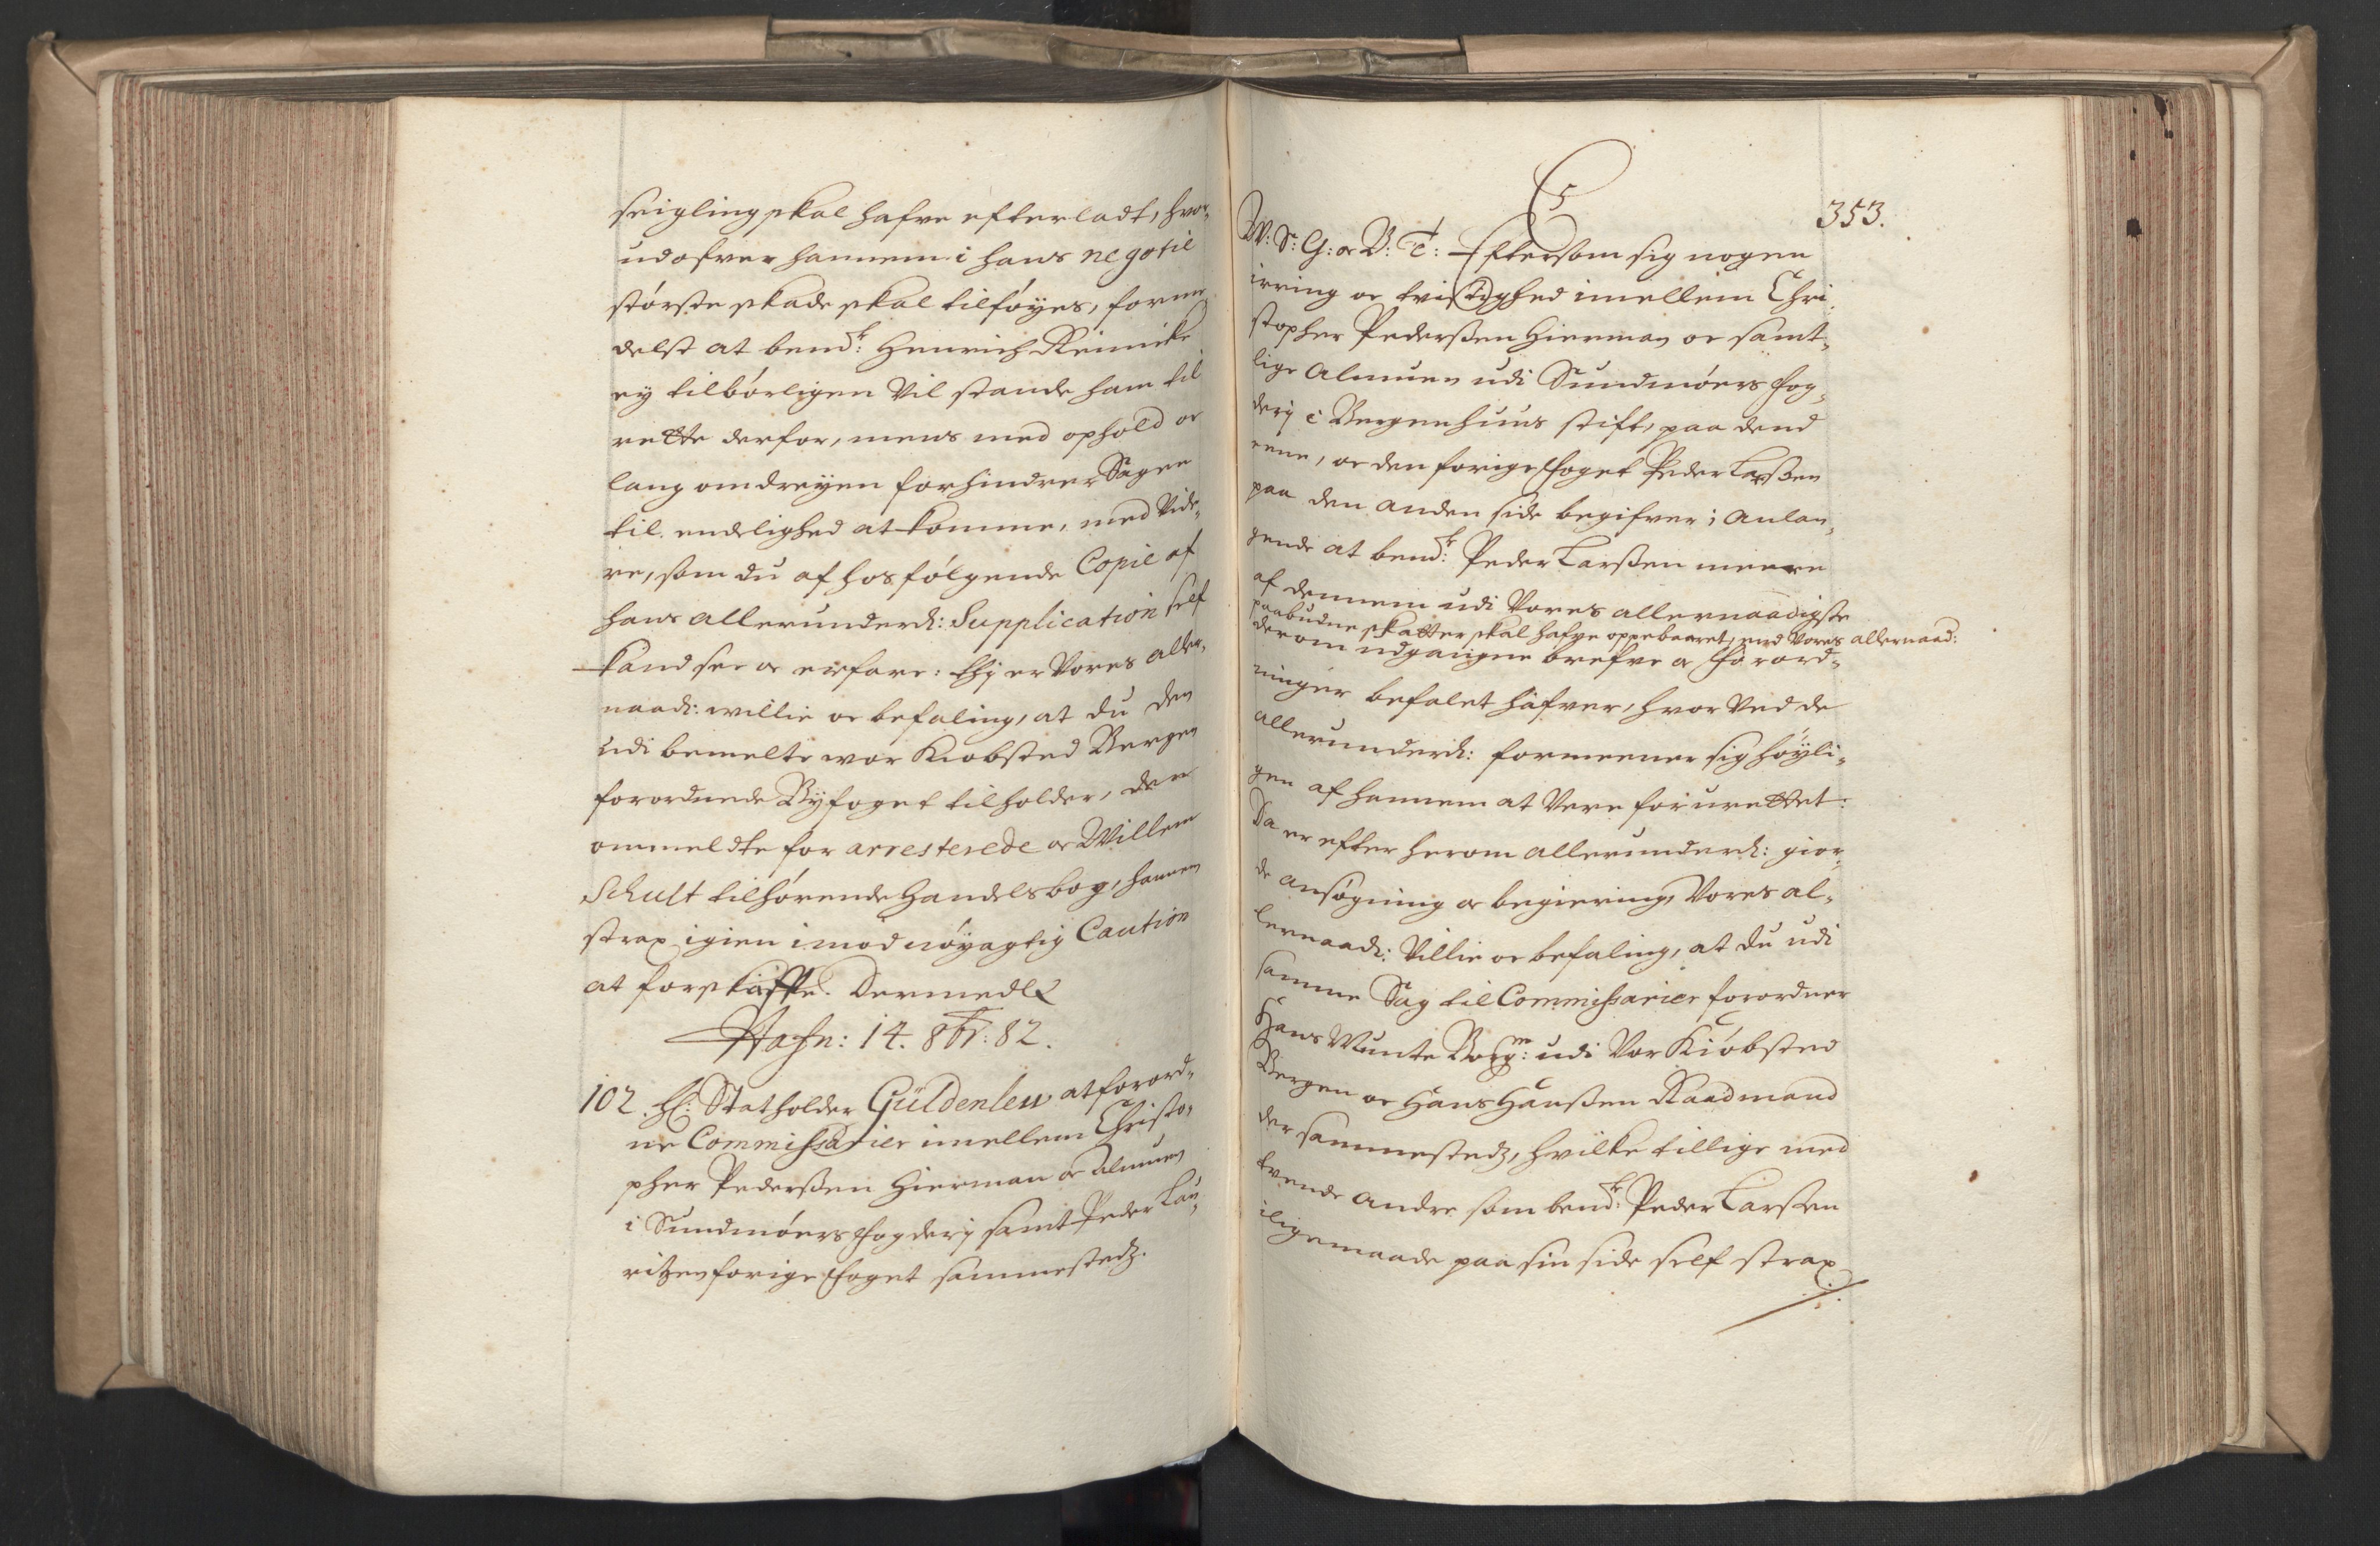 seigling skal hafve efterladt, hvor„
udofver hannem i hans negotie
störste skade skal tilföyes, forme„
delst at bem:te Henrich Reinicke
ey tilbörligen vil stande ham til
rette derfor, mens med ophold oc
lang omdreyen forhindrer Sagen
til endelighed at komme, med vide„
re, som du af hosfölgende Copie af
hans allerunderd: Supplication self
kand see oc erfare: thj er Vores aller„
naad: willie oc befaling, at du den
udi bemelte wor Kiobsted Bergen
forordnede Byfoget tilholder, den
ommeldte for arresterede oc Willem
Schult tilhörende Handelsbog, hannem
strax igien imod nöyagtig Caution
at forskaffe. Dermed &
Hafn: 14. 8br: 82.
102. H: Statholder Güldenleu at forord„
ne Commissarier imellem Christo„
pher Pederssen Hierman oc Almuen
i Sundmöers Fogderj samt Peder Lau„
ritzen forige Foget sammestedz.
353.
C5
W: S: G: oc V: T: Eftersom sig nogen
irring oc tvistighed imellem Chri„
stopher Pederssen Hierman oc samt„
lige Almuen udi Sundmöers Fog„
derj i Bergenhuus stift, paa dend
eene, oc den forige Foget Peder Larssen
paa den anden side begifver; anlan„
gende at bem:te Peder Larssen meere
af dennem udi Vores allernaadigste
paabudne skatter skal hafve oppebaaret, end Vores allernaad:
derom udgangne brefve oc Forord„
ninger befalet hafver, hvor ved de
allerunderd: formeener sig höyli„
gen af hannem at vere forurettet:
Da er efter herom allerunderd: gior„
de ansögning oc begiering, Vores al„
lernaad: Villie oc befaling, at du udi
samme Sag til Commissarier forordner
Hans Munte Borg:m udi Vor Kiöbsted
Bergen oc Hans Hanssen Raadmand
der sammestedz, hvilke tillige med
tvende andre som bem:te Peder Larssen
iligemaade paa sin side self strax